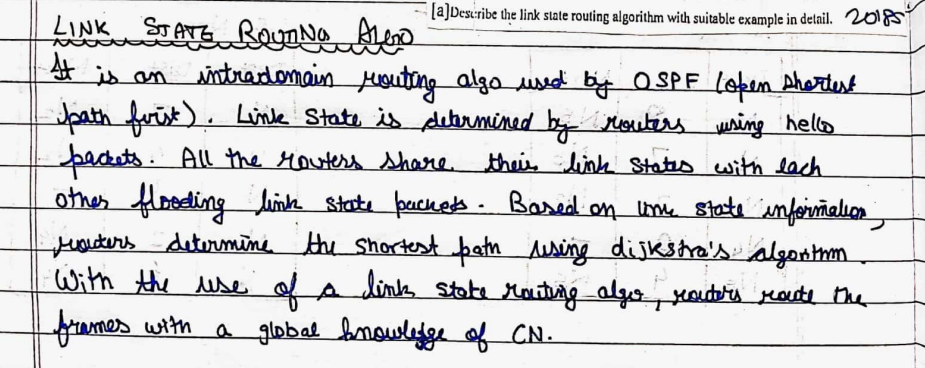 [a]Describe the link state routing algorithm with suitable example in detail. 2018S
LINK STATE ROUTING ALGO
It is an intradomain routing algo used by OSPF (open shortest
path first). Link State is determined by routers using hello
packets. All the routers share their link states with each
other flooding link state packets. Based on link state information,
routers determine the shortest path using dijkstra's algorithm.
With the use of a link state routing algo, routers route the
frames with a global knowledge of CN.